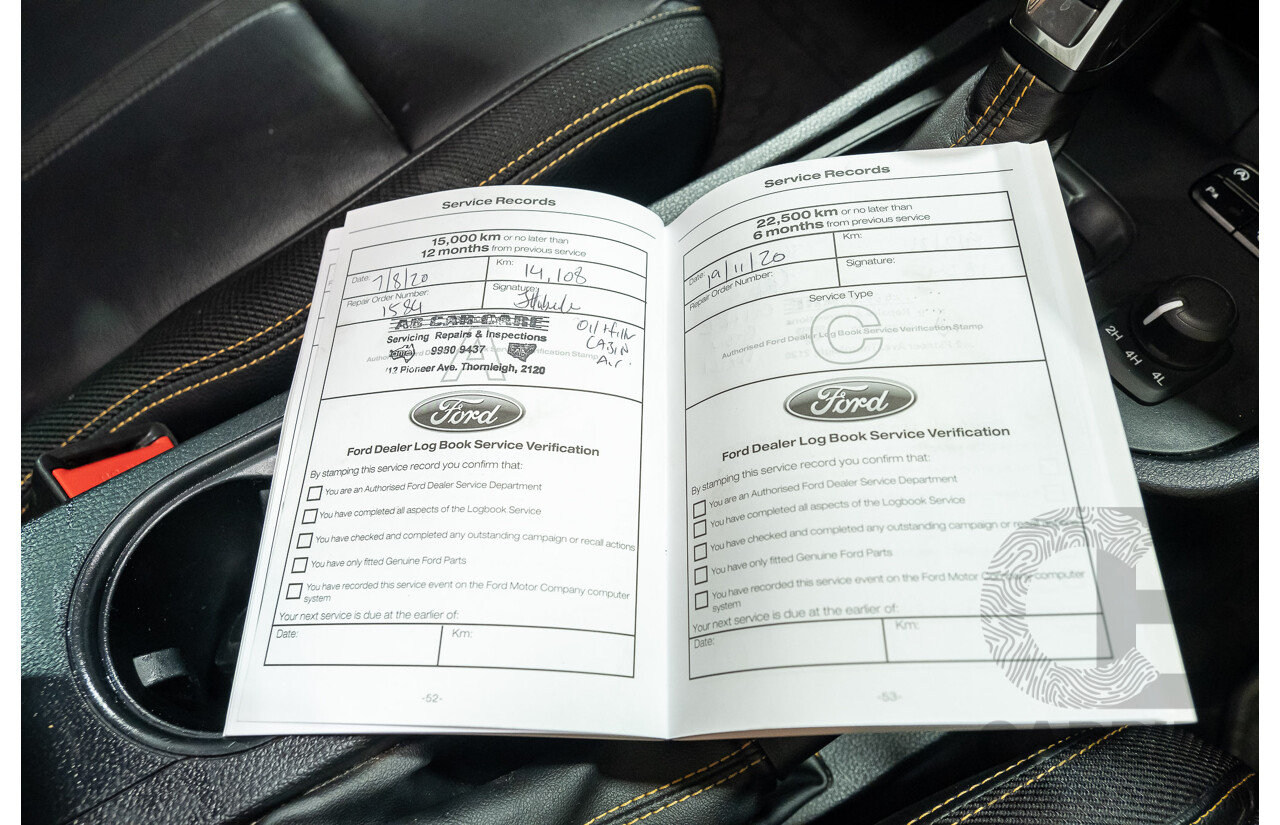 Service Records
15,000 km or no later than
12 months from previous service
Date: 7/8/20
Km: 14,108
Repair Order Number: 1584
Signature:
AB CAR CARE
Servicing Repairs & Inspections
9980 9437
Authorised Ford Dealer Log Book Service Verification Stamp
A
Pioneer Ave. Thornleigh, 2120
Oil + filter
CABIN
Air.
Ford
Ford Dealer Log Book Service Verification
By stamping this service record you confirm that:
You are an Authorised Ford Dealer Service Department
You have completed all aspects of the Logbook Service
You have checked and completed any outstanding campaign or recall actions
You have only fitted Genuine Ford Parts
You have recorded this service event on the Ford Motor Company computer
system
Your next service is due at the earlier of:
Date:
Km:
-52-
Service Records
22,500 km or no later than
6 months from previous service
Date: 19/11/20
Km:
Repair Order Number:
Signature:
Service Type
C
Authorised Ford Dealer Log Book Service Verification Stamp
Ford
Ford Dealer Log Book Service Verification
By stamping this service record you confirm that:
You are an Authorised Ford Dealer Service Department
You have completed all aspects of the Logbook Service
You have checked and completed any outstanding campaign or recall actions
You have only fitted Genuine Ford Parts
You have recorded this service event on the Ford Motor Company computer
system
Your next service is due at the earlier of:
Date:
Km:
-53-
2H
4H
4L